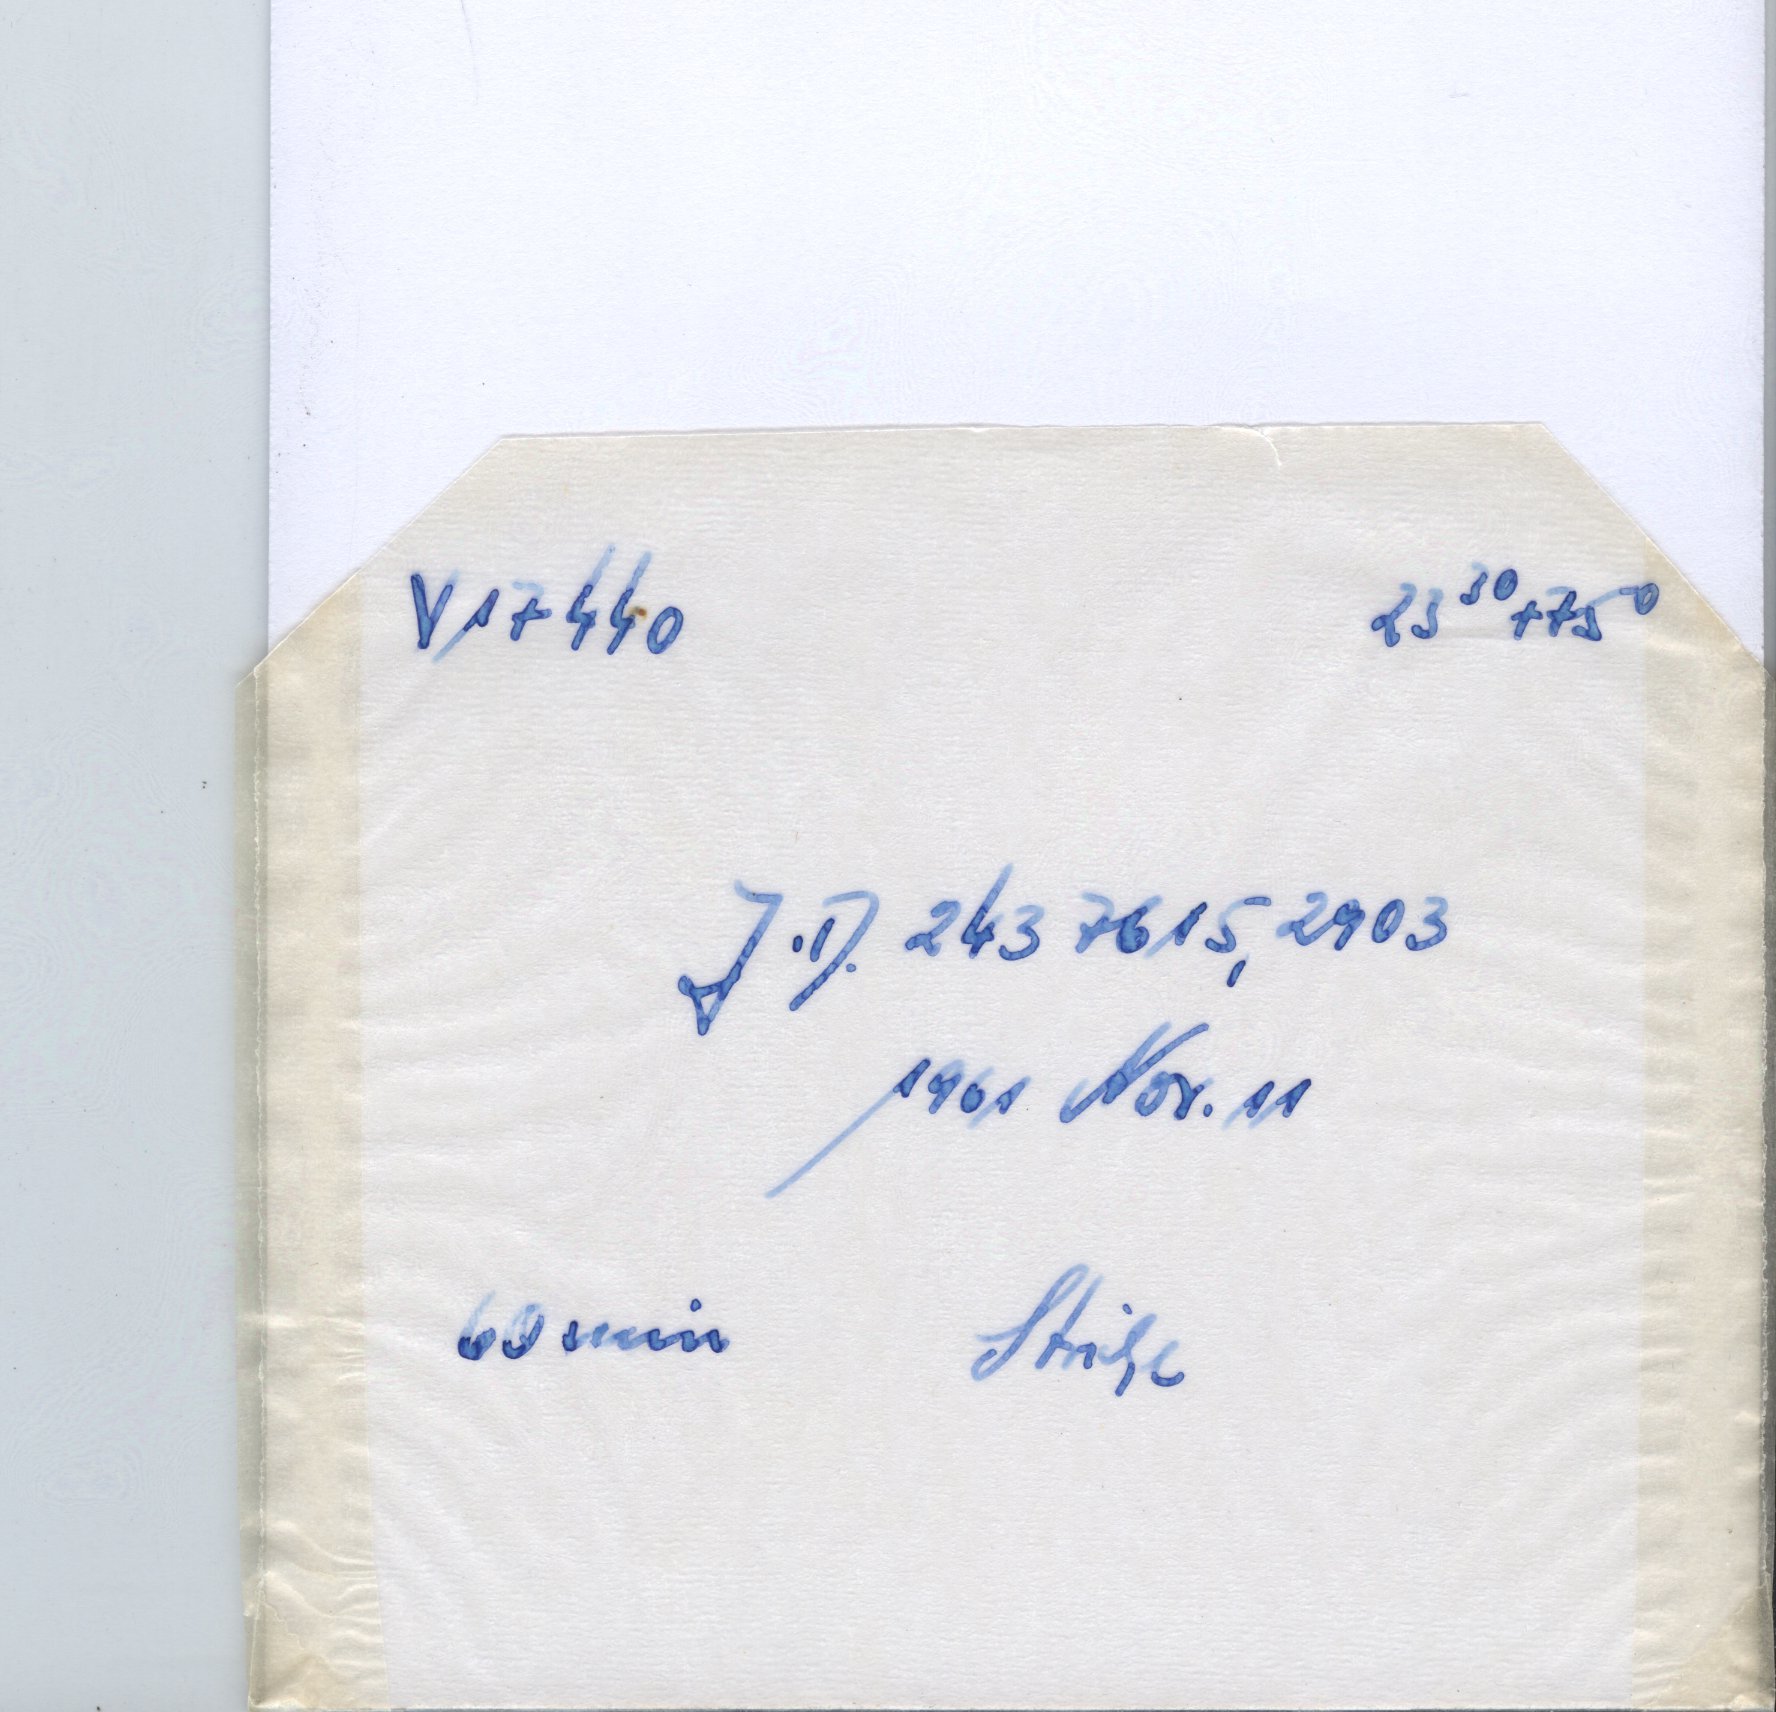 V 17440 23³⁰+75⁰
J.D. 243 7615,2903
1961 Nov. 11
60 min